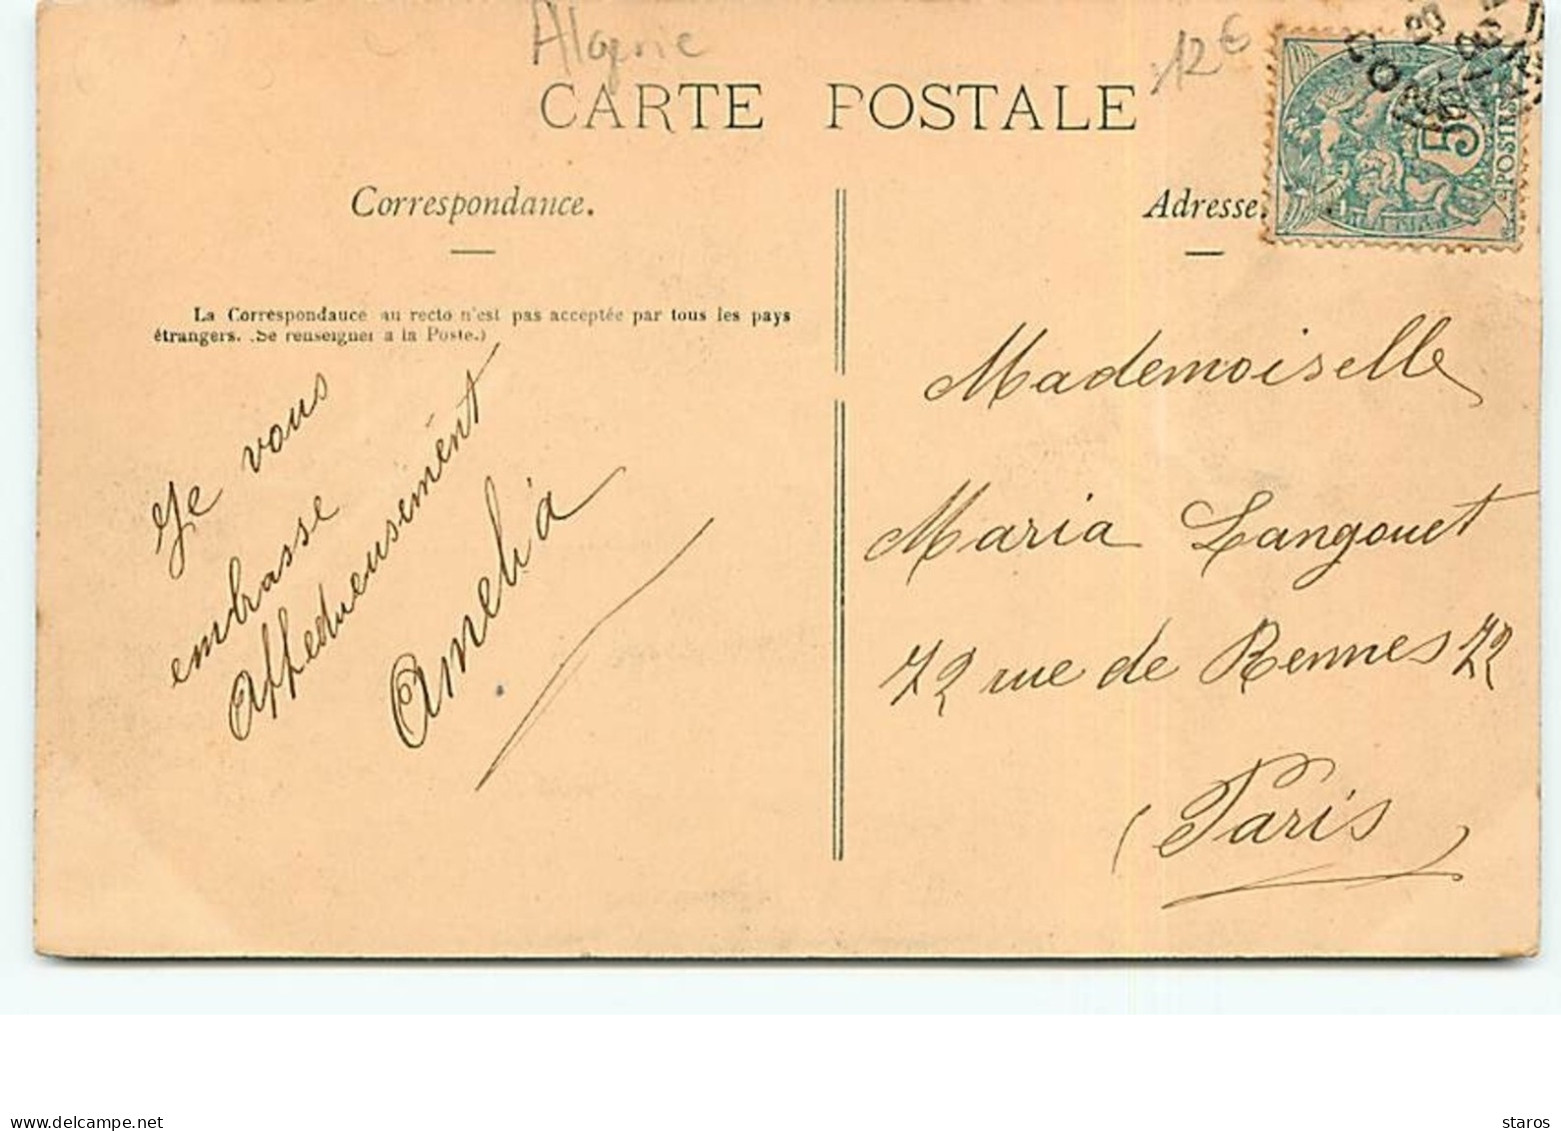 Algerie
12€
CARTE POSTALE
Correspondance.
Adresse.
5
POSTES
La Correspondance au recto n'est pas acceptée par tous les pays
étrangers. (Se renseigner a la Poste.)
Je vous
embrasse
Affectueusement
Amelia
Mademoiselle
Maria Langouet
72 rue de Rennes 72
(Paris)
www.delcampe.net
staros